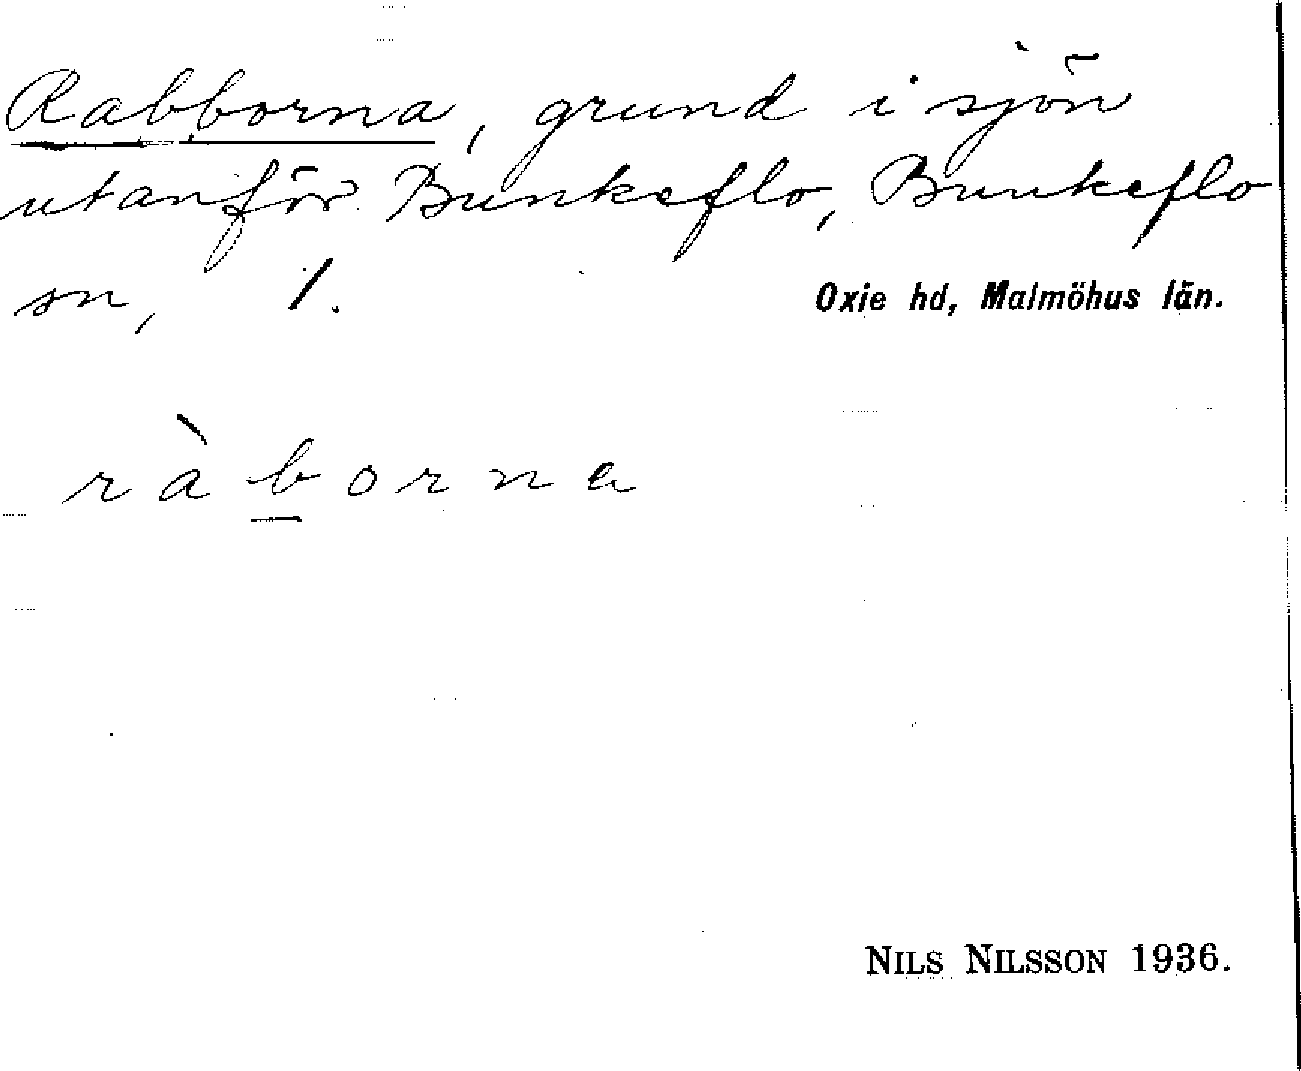 Rabborna, grund i sjön
utanför Bunkeflo, Bunkeflo
sn, 1. Oxie hd, Malmöhus län.
ràb̲orna
NILS NILSSON 1936.